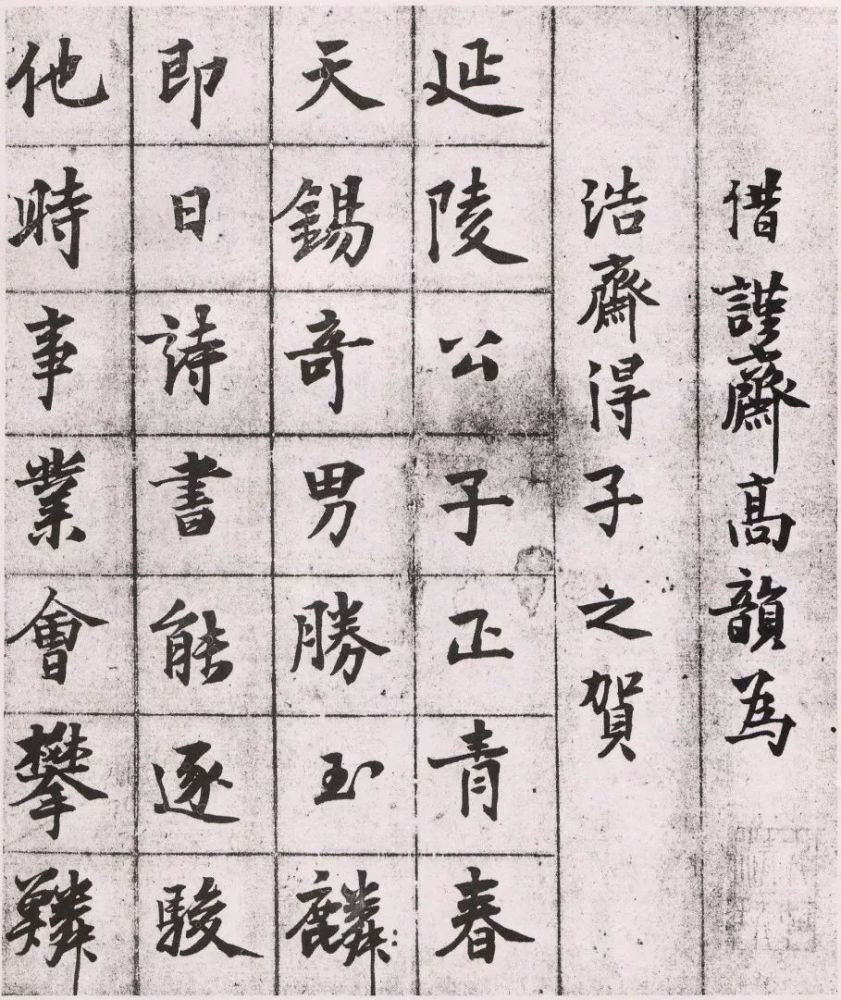 借謹齋高韻為
浩齋得子之賀
延陵公子正青春
天錫奇男勝玉麟
即日詩書能逐駿
他時事業會攀鱗